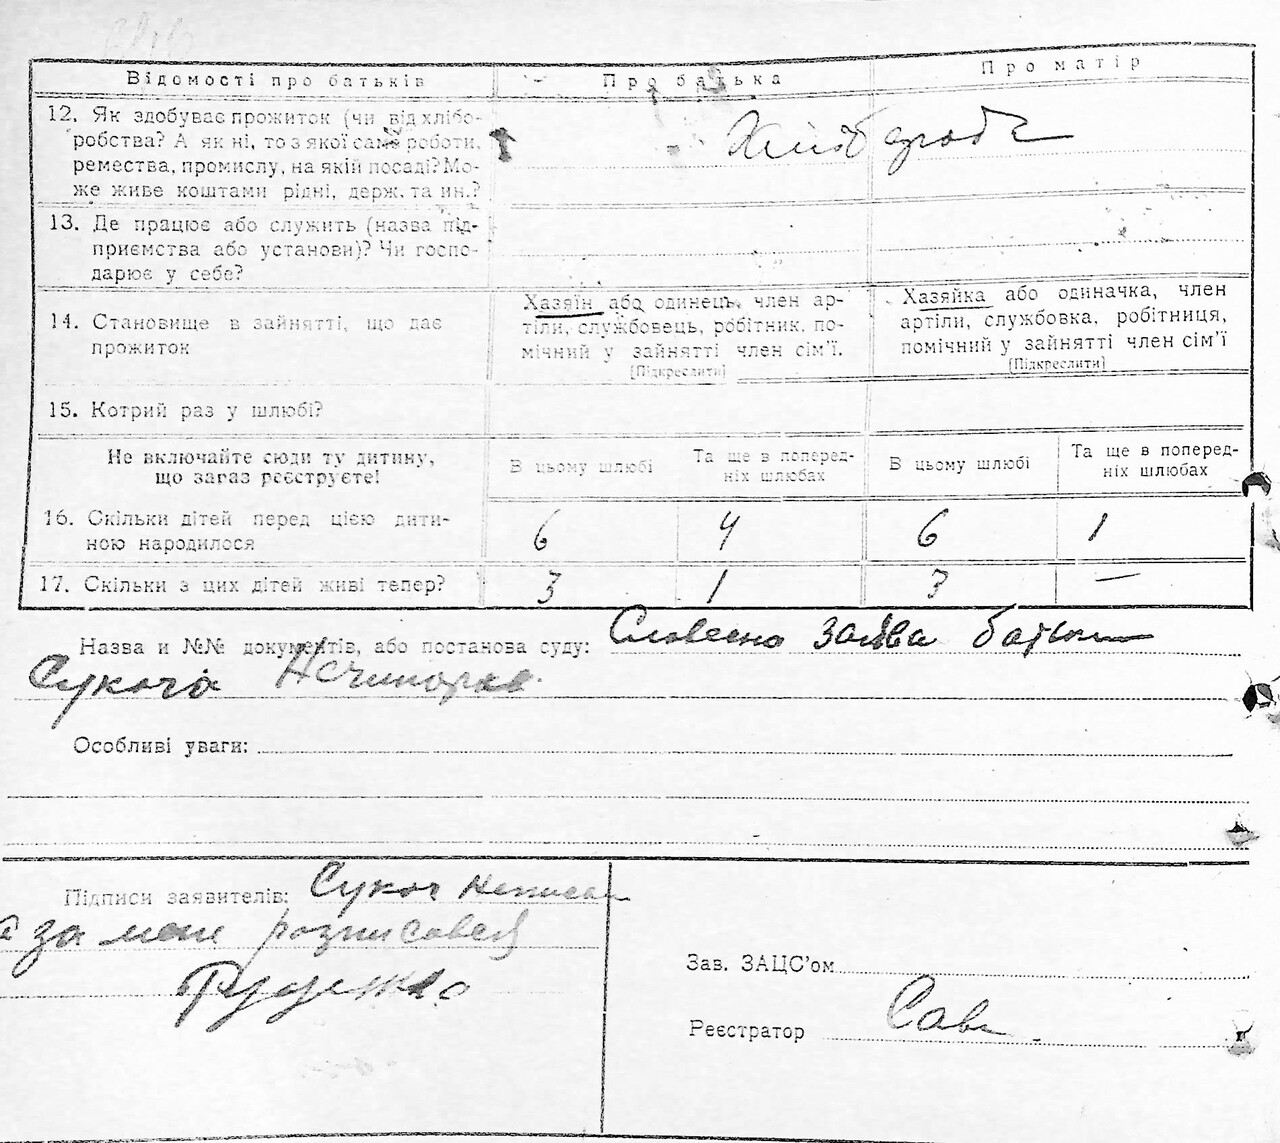 Відомості про батьків
Про батька
Про матір
12. Як здобуває прожиток (чи від хлібо-
робства? А як ні, то з якої саме роботи,
ремества, промислу, на якій посаді? Мо-
же живе коштами рідні, держ. та ин.?
13. Де працює або служить (назва під-
приємства або установи)? Чи госпо-
дарює у себе?
14. Становище в зайнятті, що дає
прожиток
Хазяїн або одинець, член ар-
тіли, службовець, робітник, по-
мічний у зайнятті член сім'ї.
[Підкреслити]
Хазяйка або одиначка, член
артіли, службовка, робітниця,
помічний у зайнятті член сім'ї
[Підкреслити]
15. Котрий раз у шлюбі?
Не включайте сюди ту дитину,
що зараз реєструєте!
В цьому шлюбі
Та ще в поперед-
ніх шлюбах
В цьому шлюбі
Та ще в поперед-
ніх шлюбах
16. Скільки дітей перед цією дити-
ною народилося
6 4 6 1
17. Скільки з цих дітей живі тепер?
3 1 3 —
Назва и №№ документів, або постанова суду: Словесно заява батька
Сукача
Особливі уваги:
Підписи заявителів: Сукач неписьм
а за мене розписався
Руденко
Зав. ЗАЦС'ом
Реєстратор Сав